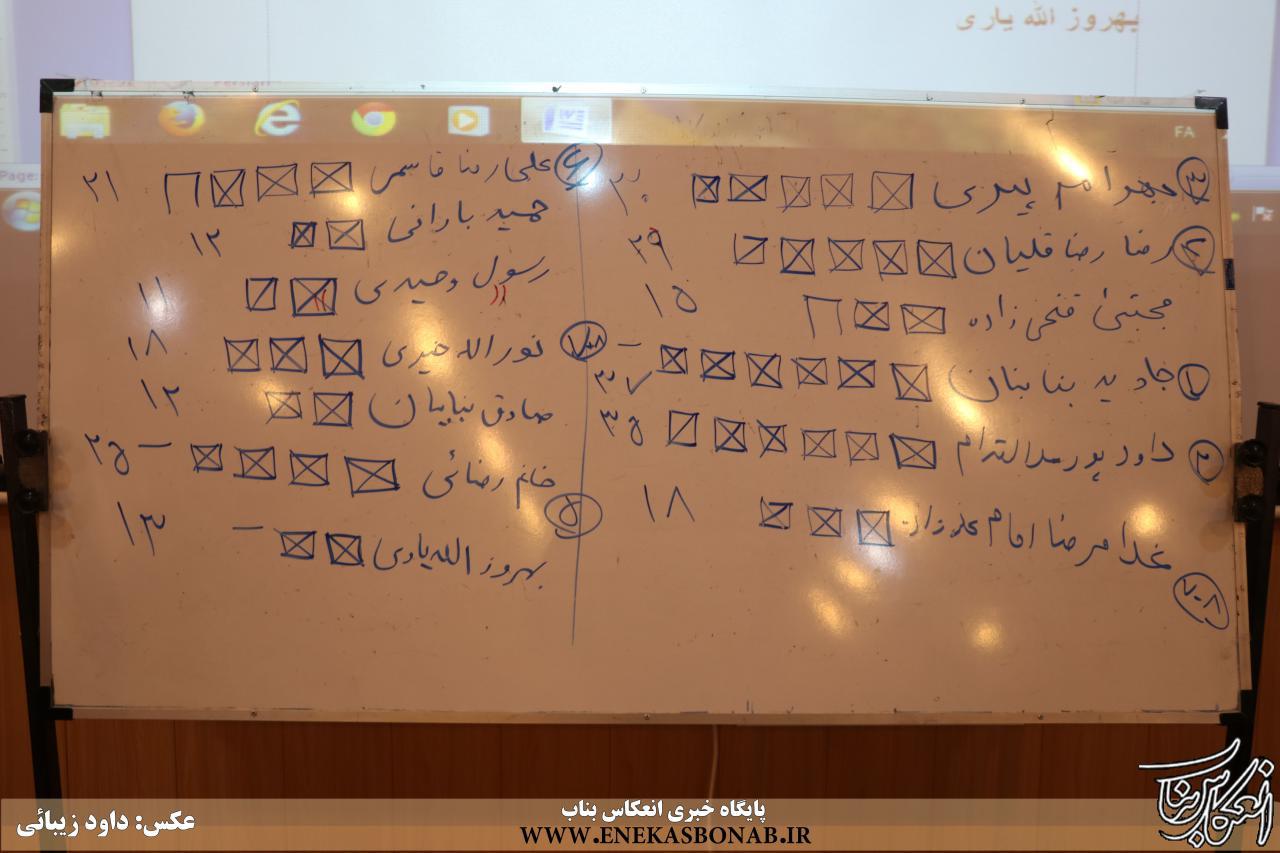 بهروز الله یاری
Page:
FA
۳ بهرام پیری ۳۰
۴ رضا رضا قلیان ۲۹
مجتبی فتحی زاده ۱۵
۱ جاوید بنابیان ۳۷
۲ داود پور
۳۵
۷-۸ غلامرضا امام علیزاده ۱۸
۶ علی رضا قاسمی ۲۱
حمید بارانی ۱۲
رسول وحیدی ۱۱
۷-۸ نورالله حیدری ۱۸
صادق بنابیان ۱۲
۵ خانم رضائی ۲۵
بهروز الله یاری ۱۳
انعکاس بناب
پایگاه خبری انعکاس بناب
WWW.ENEKASBONAB.IR
عکس: داود زیبائی